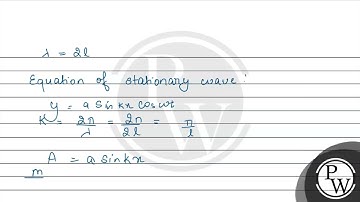 λ = 2l
Equation of stationary wave:
y = a sin kx cos ωt
K = 2π/λ = 2π/2l = π/l
A = a sin kx
m
P
W
PW